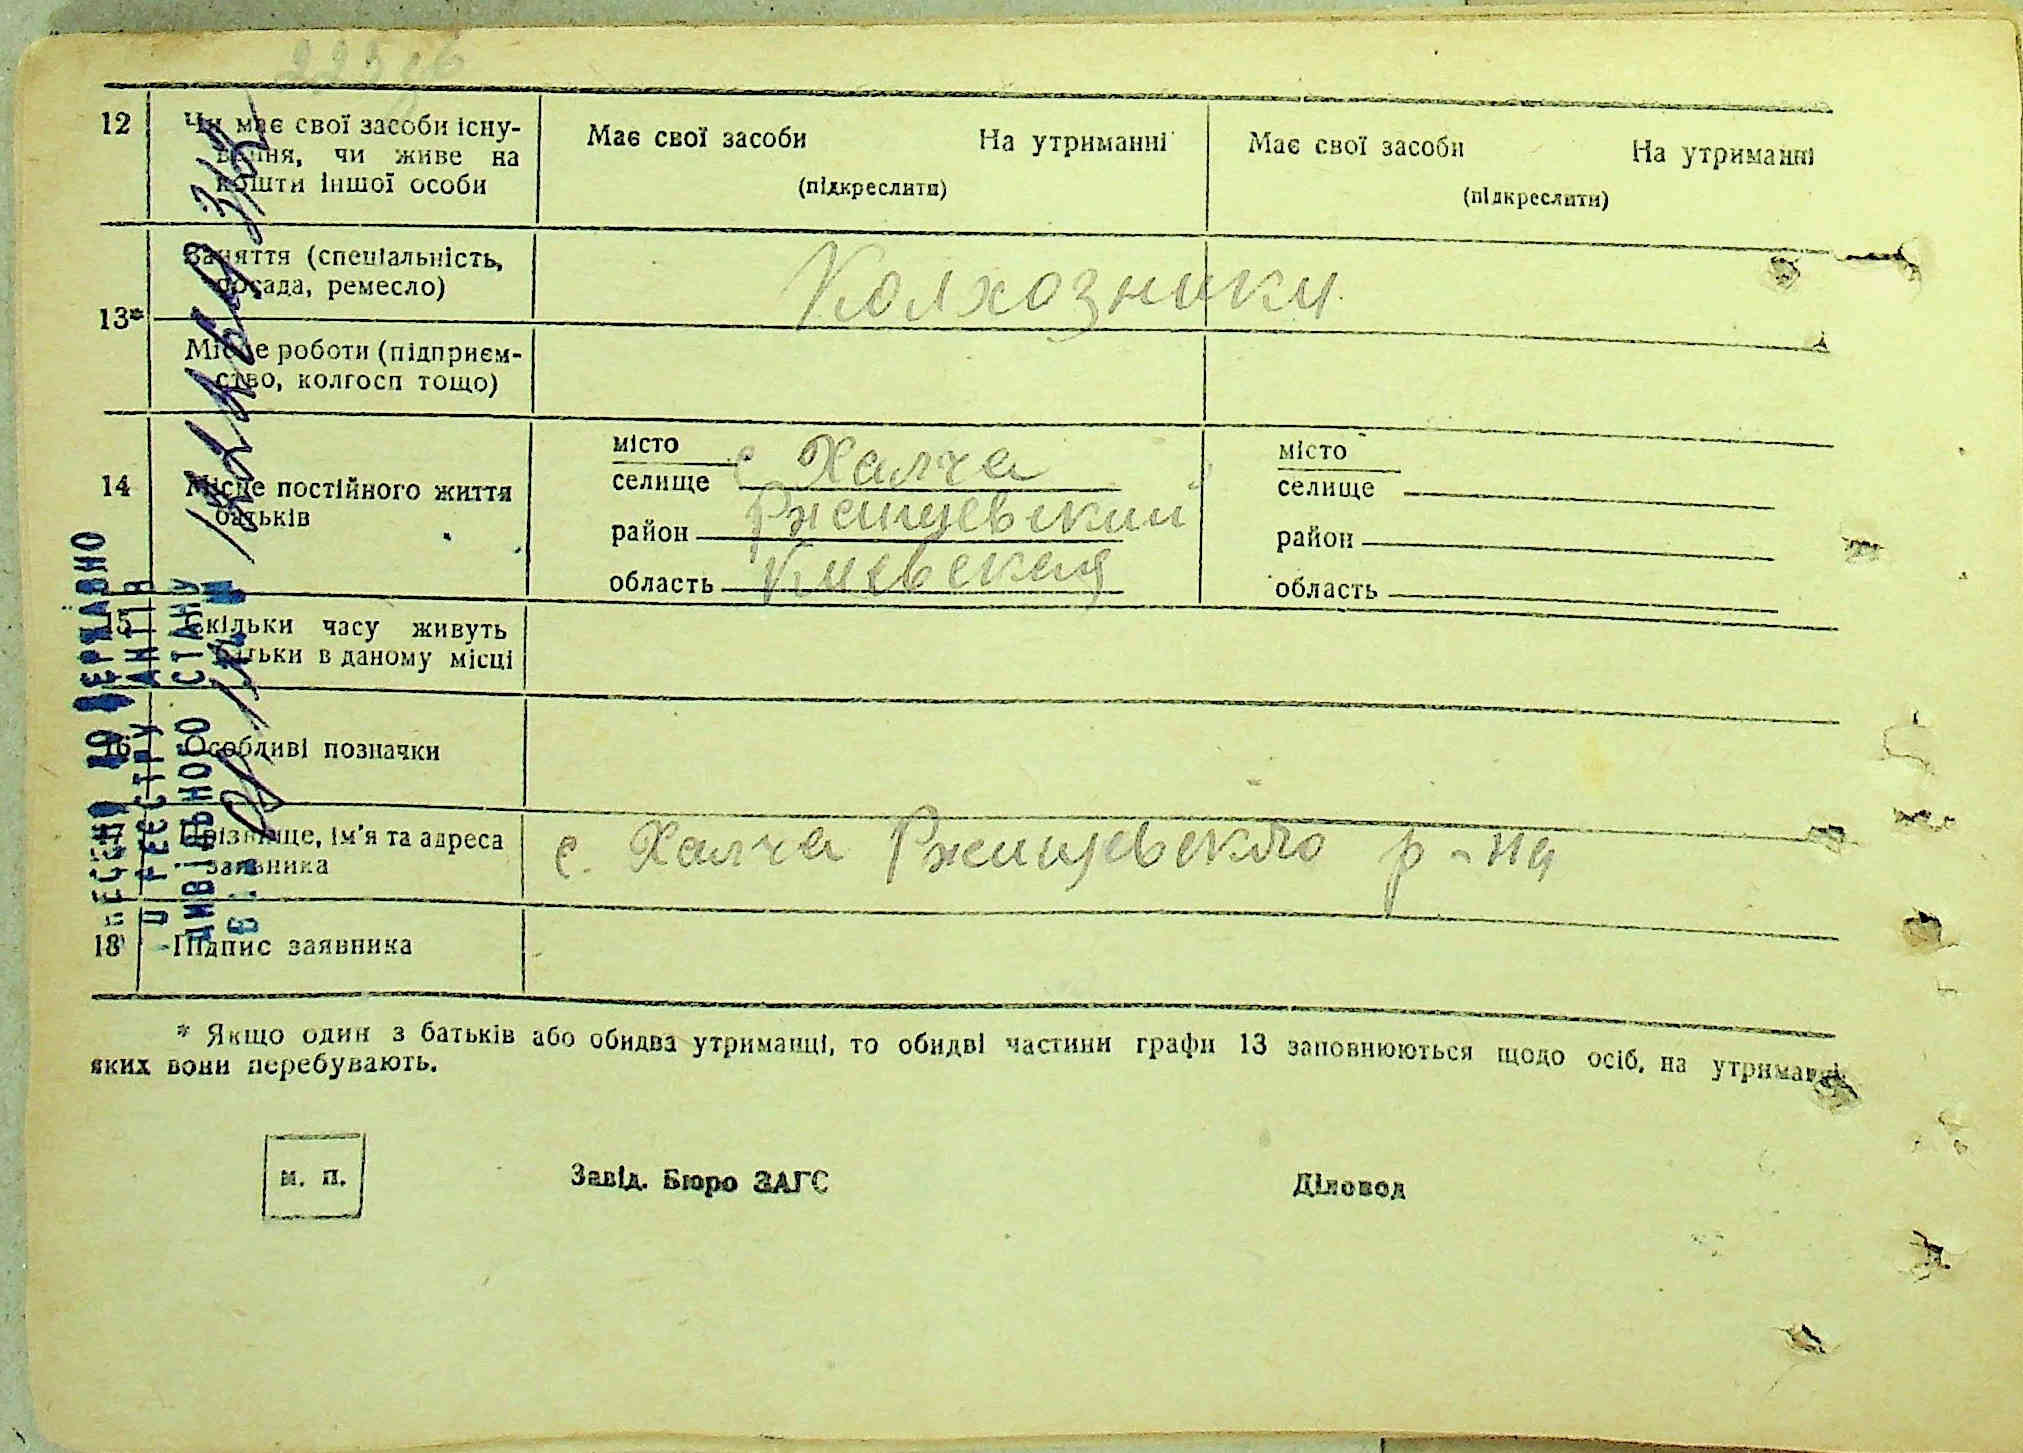 12
Чи має свої засоби існу-
вання, чи живе на
кошти іншої особи
Має свої засоби На утриманні
(підкреслити)
Має свої засоби На утриманні
(підкреслити)
13*
Заняття (спеціальність,
посада, ремесло)
Колхозники
Місце роботи (підприєм-
ство, колгосп тощо)
14
Місце постійного життя
батьків
місто
селище с Халча
район Ржищевский
область Киевская
місто
селище
район
область
15
Скільки часу живуть
батьки в даному місці
16
Особливі позначки
Прізвище, ім'я та адреса
заявника
с. Халча Ржищевского р-на
18
Підпис заявника
* Якщо один з батьків або обидва утриманці, то обидві частини графи 13 заповнюються щодо осіб, на утриманні
яких вони перебувають.
м. п.
Завід. Бюро ЗАГС
Діловод
ВНЕСЕНО ДО ДЕРЖАВНО
РЕЄСТРУ АКТІВ
ЦИВІЛЬНОГО СТАНУ